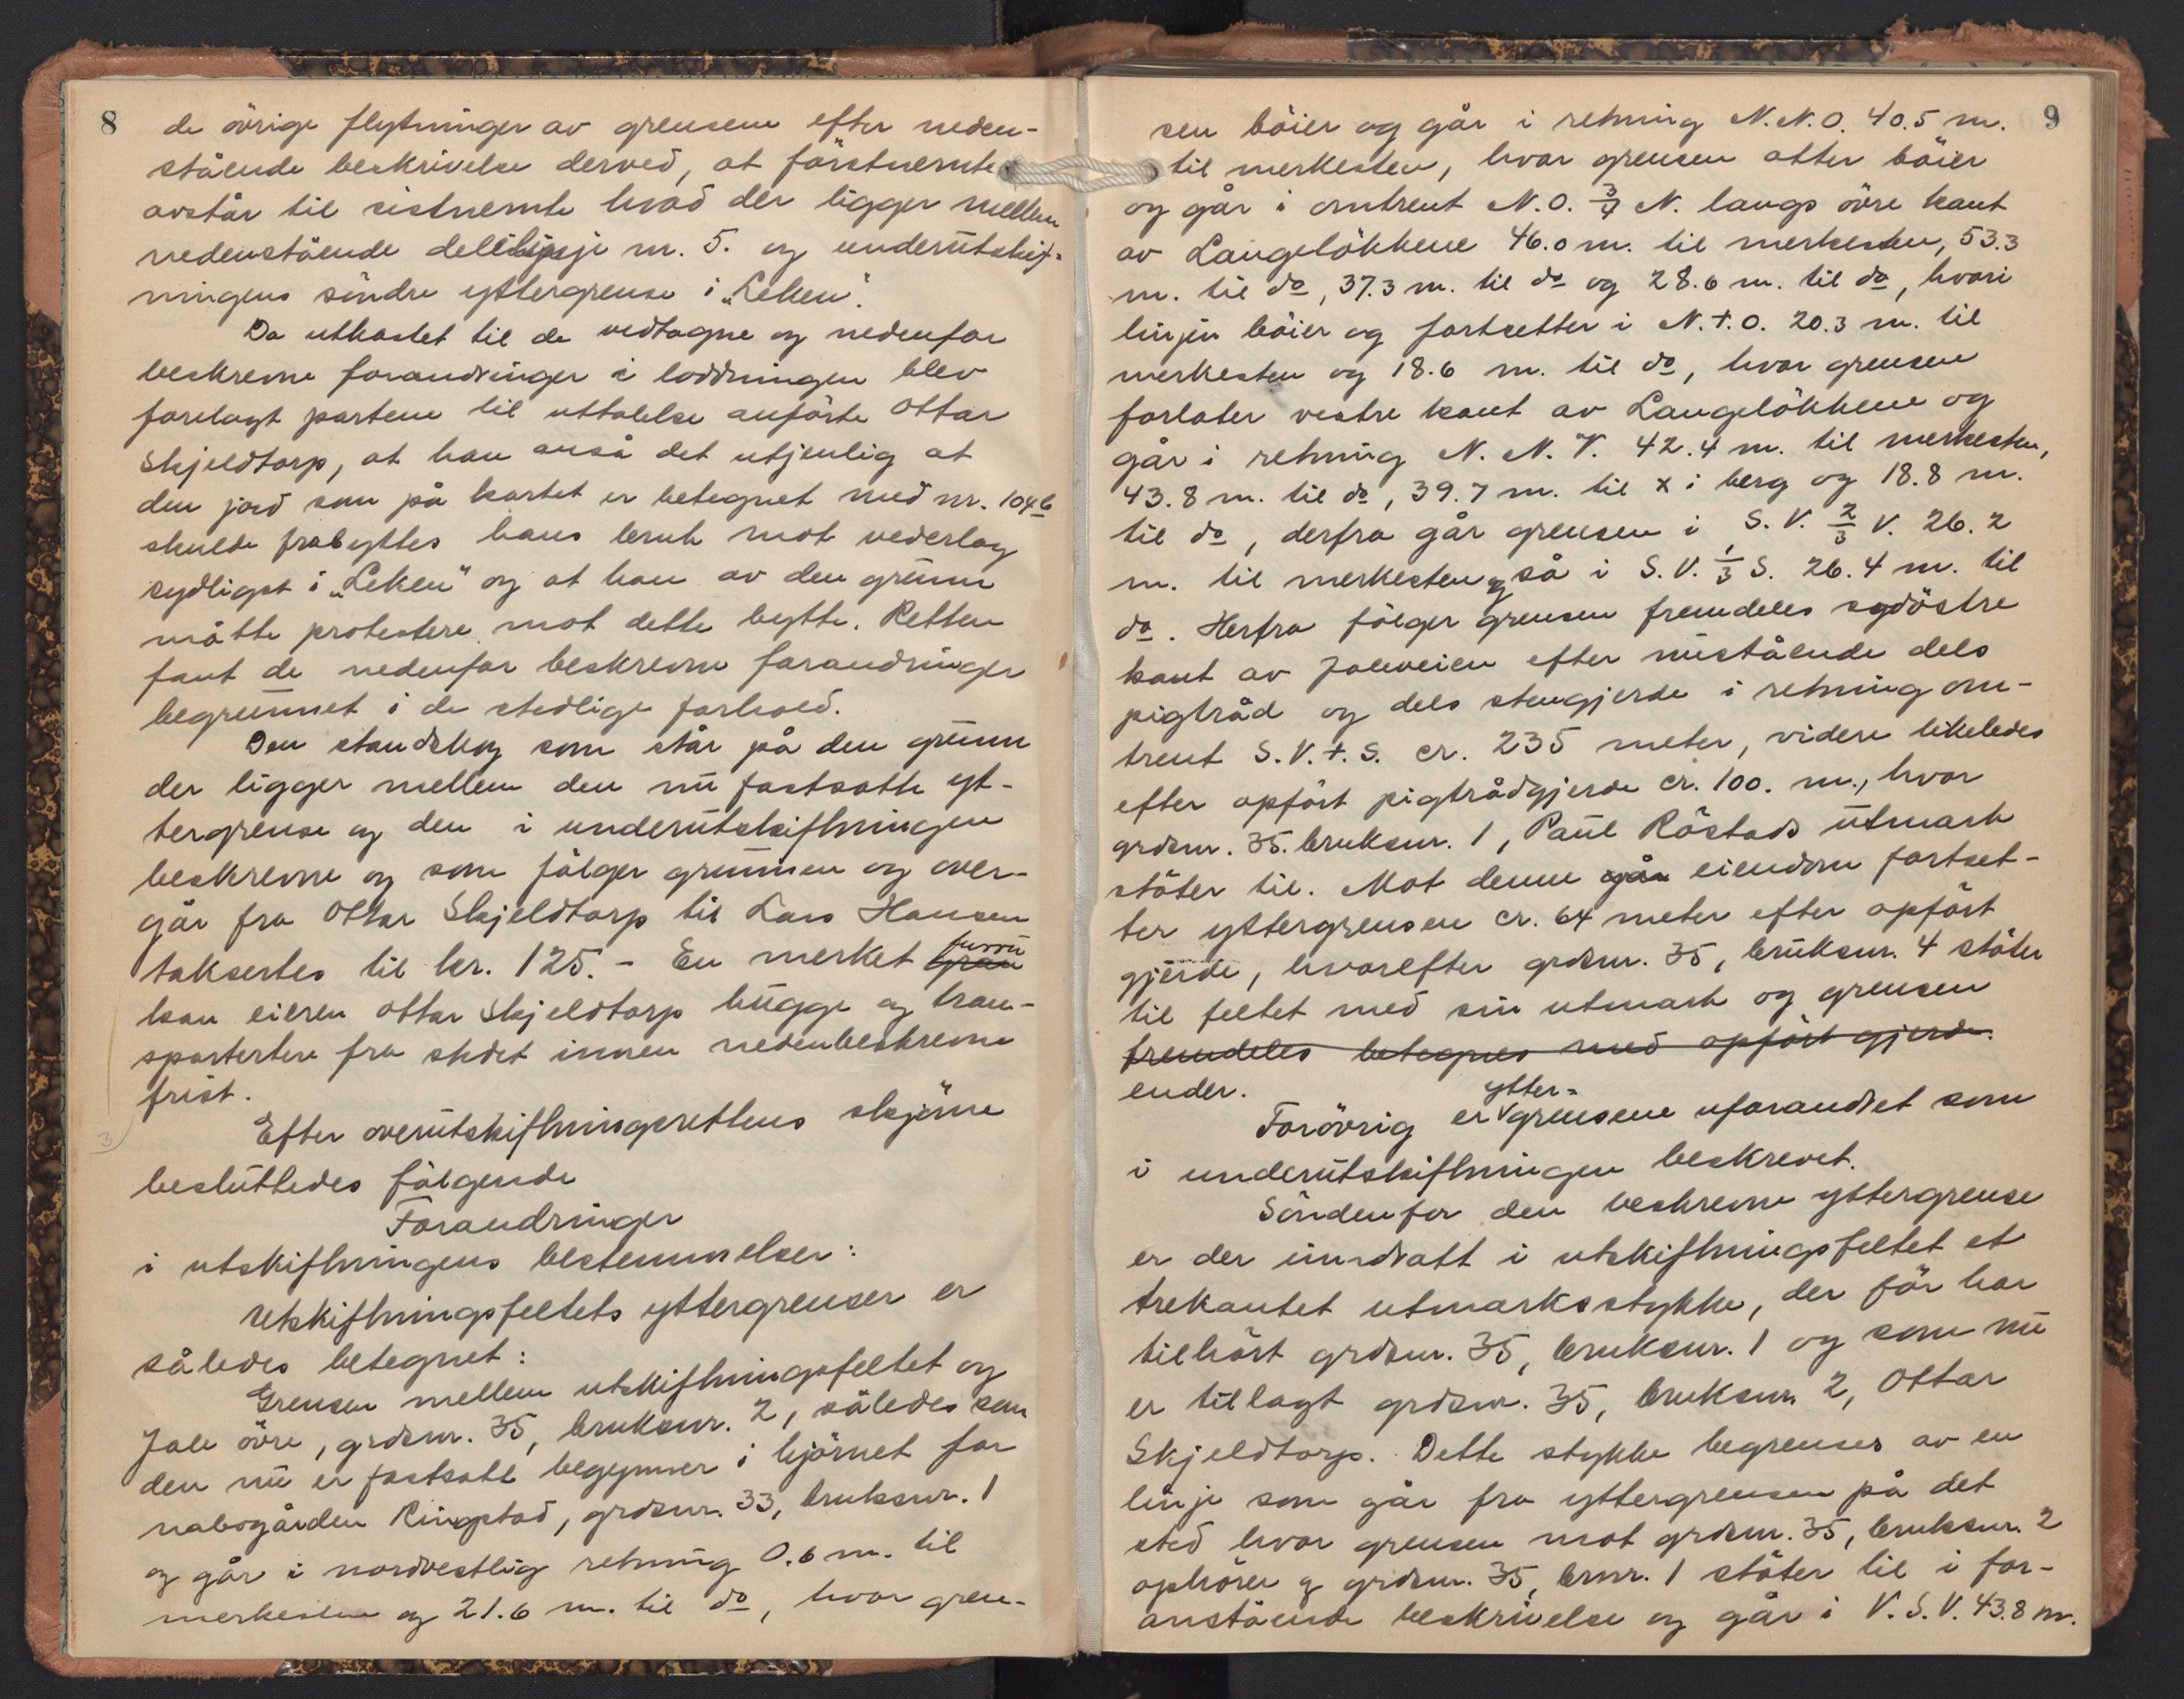 8
de övrige flytninger av grensene efter neden-
stående beskrivelse derved, at förstnevnte
avstår til sistnevnte hvad der ligger mellem
nedenstående delelinje nr. 5. og underutskift-
ningens söndre yttergrense i „Leken“.
Da utkastet til de vedtagne og nedenfor
beskrevne forandringer i loddningen blev
forelagt partene til uttalelse anförte Ottar
Skjeldtorp, at han anså det utjenlig at
den jord som på kartet er betegnet med nr. 104b
skulde frabyttes hans bruk mot vederlag
sydligst i „Leken“ og at han av den grunn
måtte protestere mot dette bytte. Retten
fant de nedenfor beskrevne forandringer
begrunnet i de stedlige forhold.
Den standskog som står på den grunn
der ligger mellem den nu fastsatte yt-
tergrense og den i underutskiftningen
beskrevne og som fölger grunnen og over-
går fra Ottar Skjeldtorp til Lars Hansen
taksertes til kr. 125.- En merket gran furru
kan eieren Ottar Skjeldtorp hugge og tran-
sportere fra stedet innen nedenbeskrevne
frist.
Efter overutskiftningsrettens skjönn
besluttedes fölgende
Forandringer
i utskiftningens bestemmelser:
Utskiftningsfeltets yttergrenser er
således betegnet:
Grensen mellem utskiftningsfeltet og
Jale övre, grdsnr. 35, bruksnr. 2, således som
den nu er fastsatt begynner i hjörnet for
nabogården Ringstad, grdsnr. 33, bruksnr. 1
og går i nordvestlig retning 0.6 m. til
merkesten og 21.6 m. til do, hvor gren-
9
sen böier og går i retning N.N.O. 40.5 m.
til merkesten, hvor grensen atter böier
og går i omtrent N.O. 3/4 N. langs övre kant
av Langelökkene 46.0 m. til merkesten, 53.3
m. til do, 37.3 m. til do og 28.6 m. til do, hvori
linjen böier og fortsetter i N.t.O. 20.3 m. til
merkesten og 18.6 m. til do, hvor grensen
forlater vestre kant av Langelökkene og
går i retning N.N.V. 42.4 m. til merkesten,
43.8 m. til do, 39.7 m. til x i berg og 18.8 m.
til do, derfra går grensen i S.V. 2/3 V. 26.2
m. til merkesten og så i S.V. 1/3 S. 26.4 m. til
do. Herfra fölger grensen fremdeles sydöstre
kant av Jaleveien efter nustående dels
pigtråd og dels stengjerde i retning om-
trent S.V.t.S. cr. 235 meter, videre likeledes
efter opfört pigtrådgjerde cr. 100. m., hvor
grdsnr. 35. bruksnr. 1, Paul Röstads utmark
stöter til. Mot denne går eiendom fortset-
ter yttergrensen cr. 64 meter efter opfört
gjerde, hvorefter grdsnr. 35, bruksnr. 4 stöter
til feltet med sin utmark og grensen
fremdeles betegnes med opfört gjerde.
ender.
Forövrig er ytter-grensene uforandret som
i underutskiftningen beskrevet.
Söndenfor den beskrevne yttergrense
er der inndratt i utskiftningsfeltet et
trekantet utmarksstykke, der för har
tilhört grdsnr. 35, bruksnr. 1 og som nu
er tillagt grdsnr. 35, bruksnr 2, Ottar
Skjeldtorp. Dette stykke begrenses av en
linje som går fra yttergrensen på det
sted hvor grensen mot grdsnr. 35, bruksnr. 2
ophörer og grdsnr. 35, brnr. 1 stöter til i for-
anstående beskrivelse og går i V.S.V. 43.8 m.